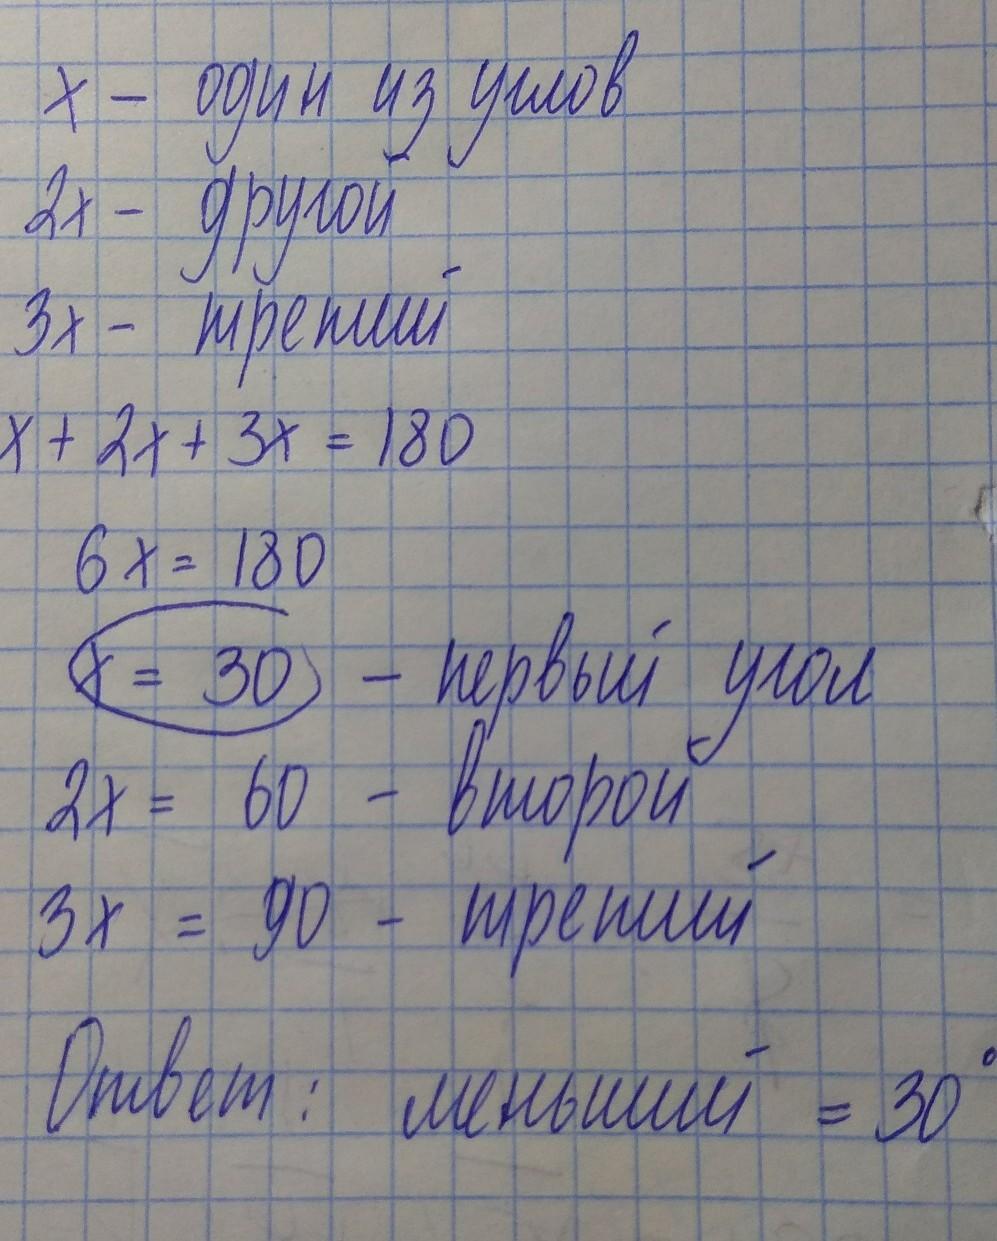 x – один из углов
2x – другой
3x – третий
x + 2x + 3x = 180
6x = 180
x = 30 – первый угол
2x = 60 – второй
3x = 90 – третий
Ответ: меньший = 30°